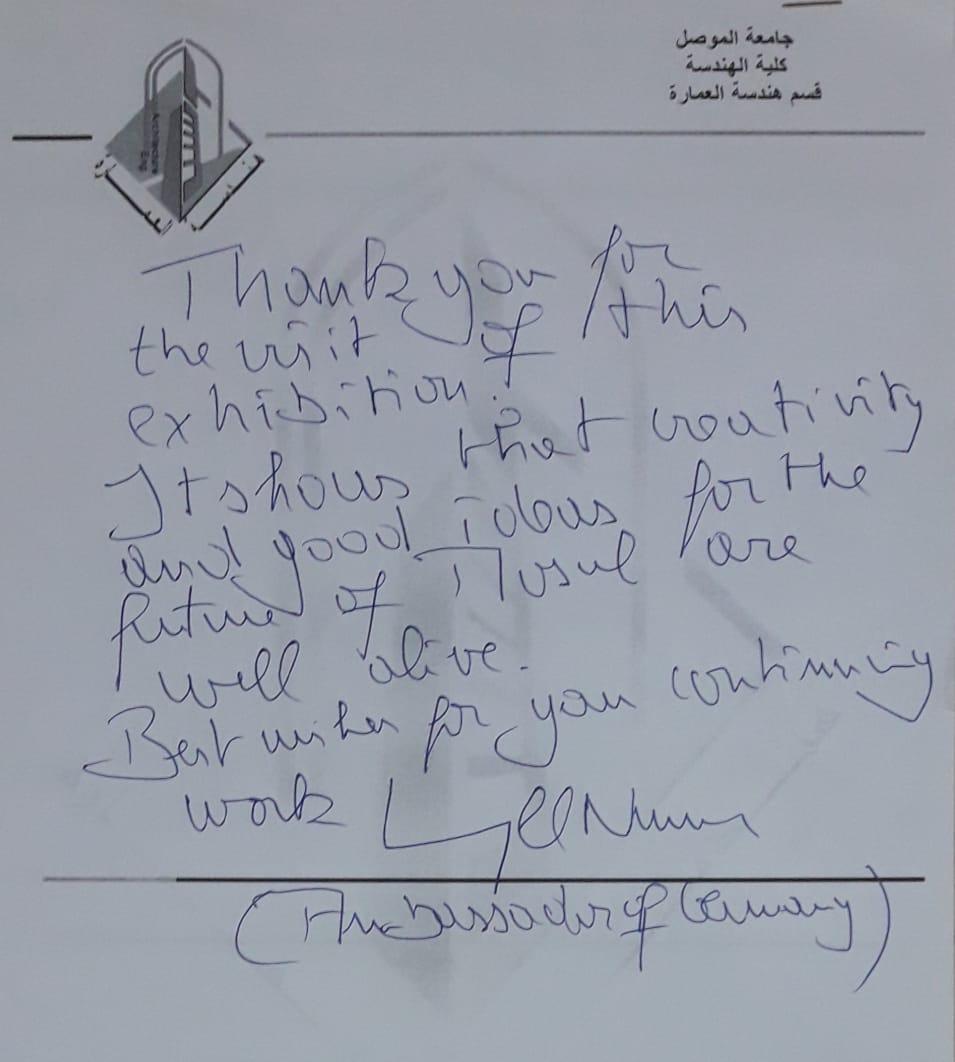 جامعة الموصل
كلية الهندسة
قسم هندسة العمارة
Architecture
Eng
Thank you for
the visit of this
exhibition.
It shows that creativity
and good ideas for the
future of Mosul are
well alive.
Best wishes for your continuing
work
(Ambassador of Germany)